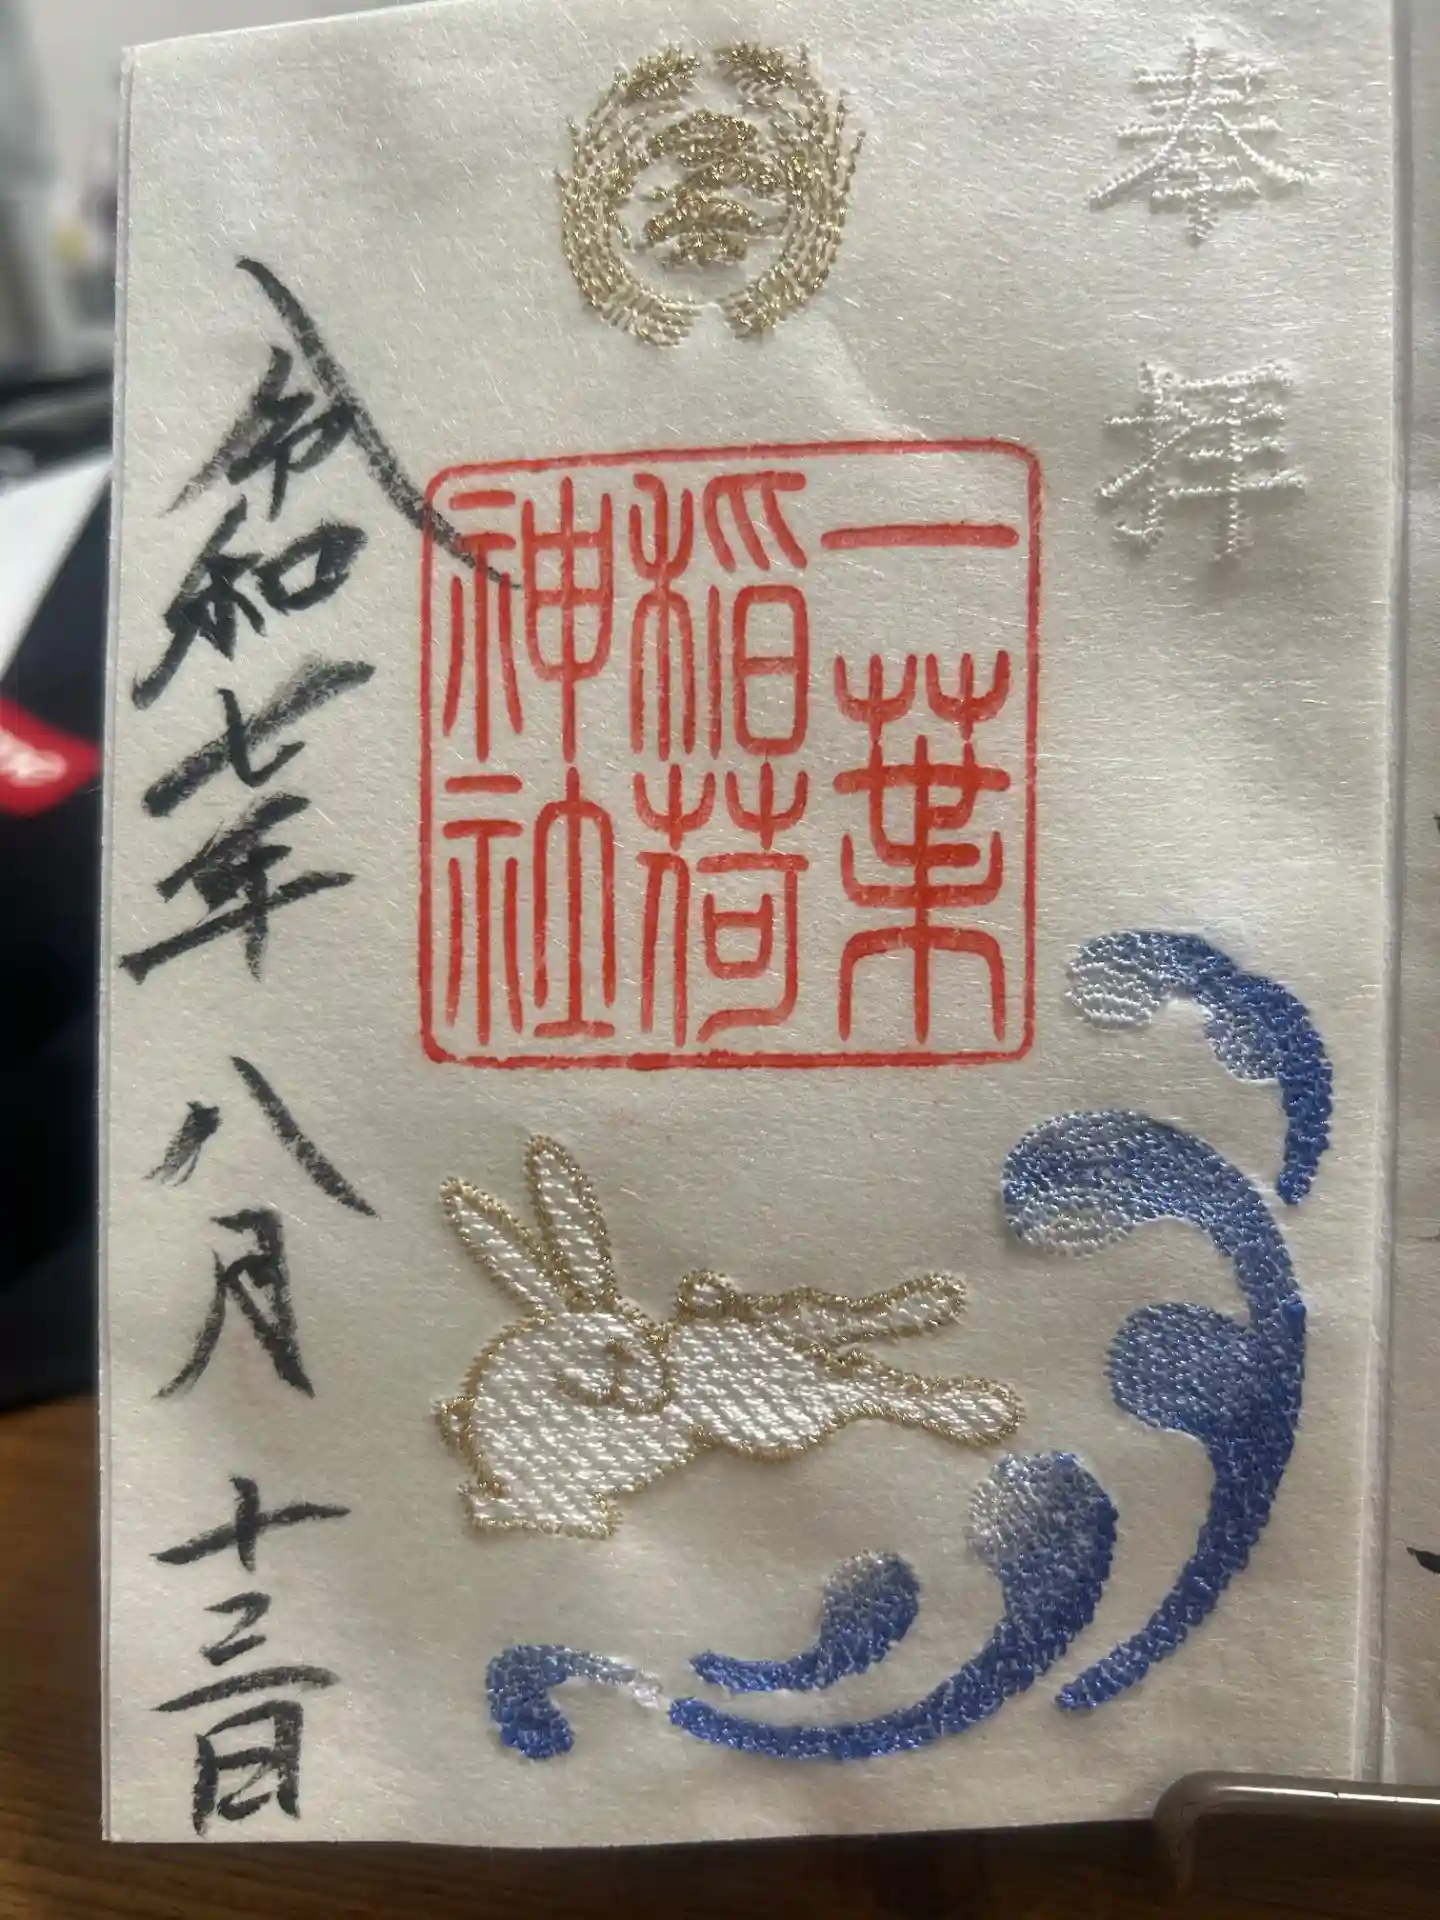 奉拝
一葉
稲荷
神社
令和七年八月十三日